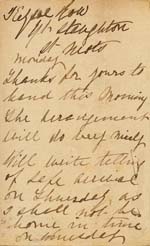 Gt Staughton
St Neots
Monday
Thanks for yours to
hand this Morning
the arrangement
will do very nicely
Will write telling
of safe arrival
on Thursday as
I shall not be
home in time
on Wednesday